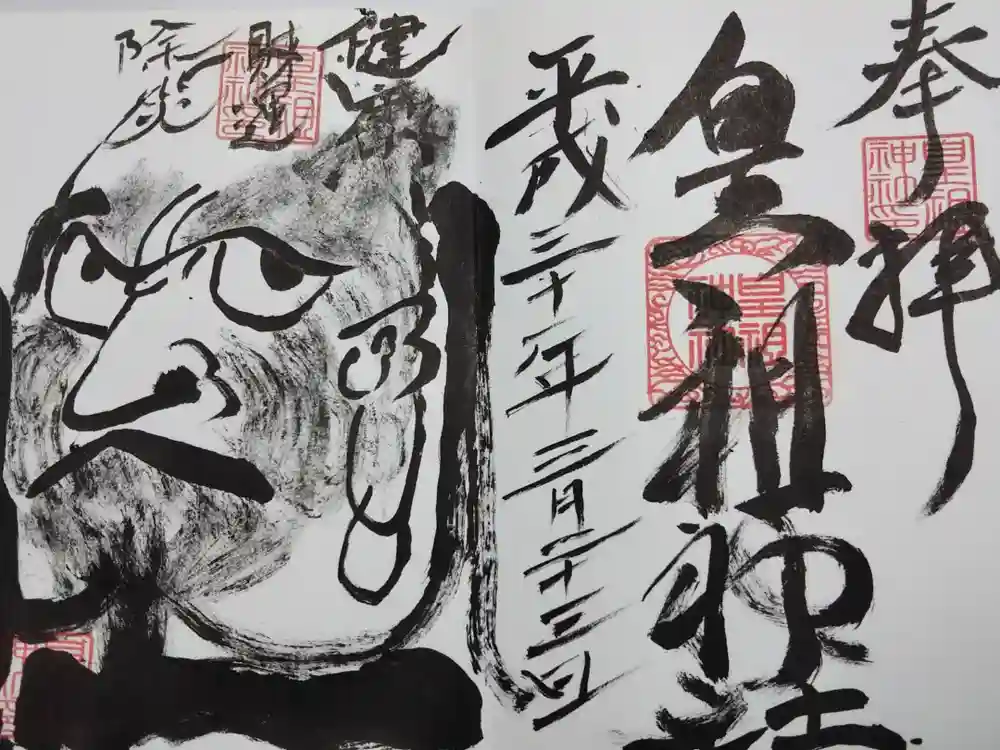 奉拝
皇祖神社
平成三十一年三月二十三日
健康
財運
除災
皇祖神社印